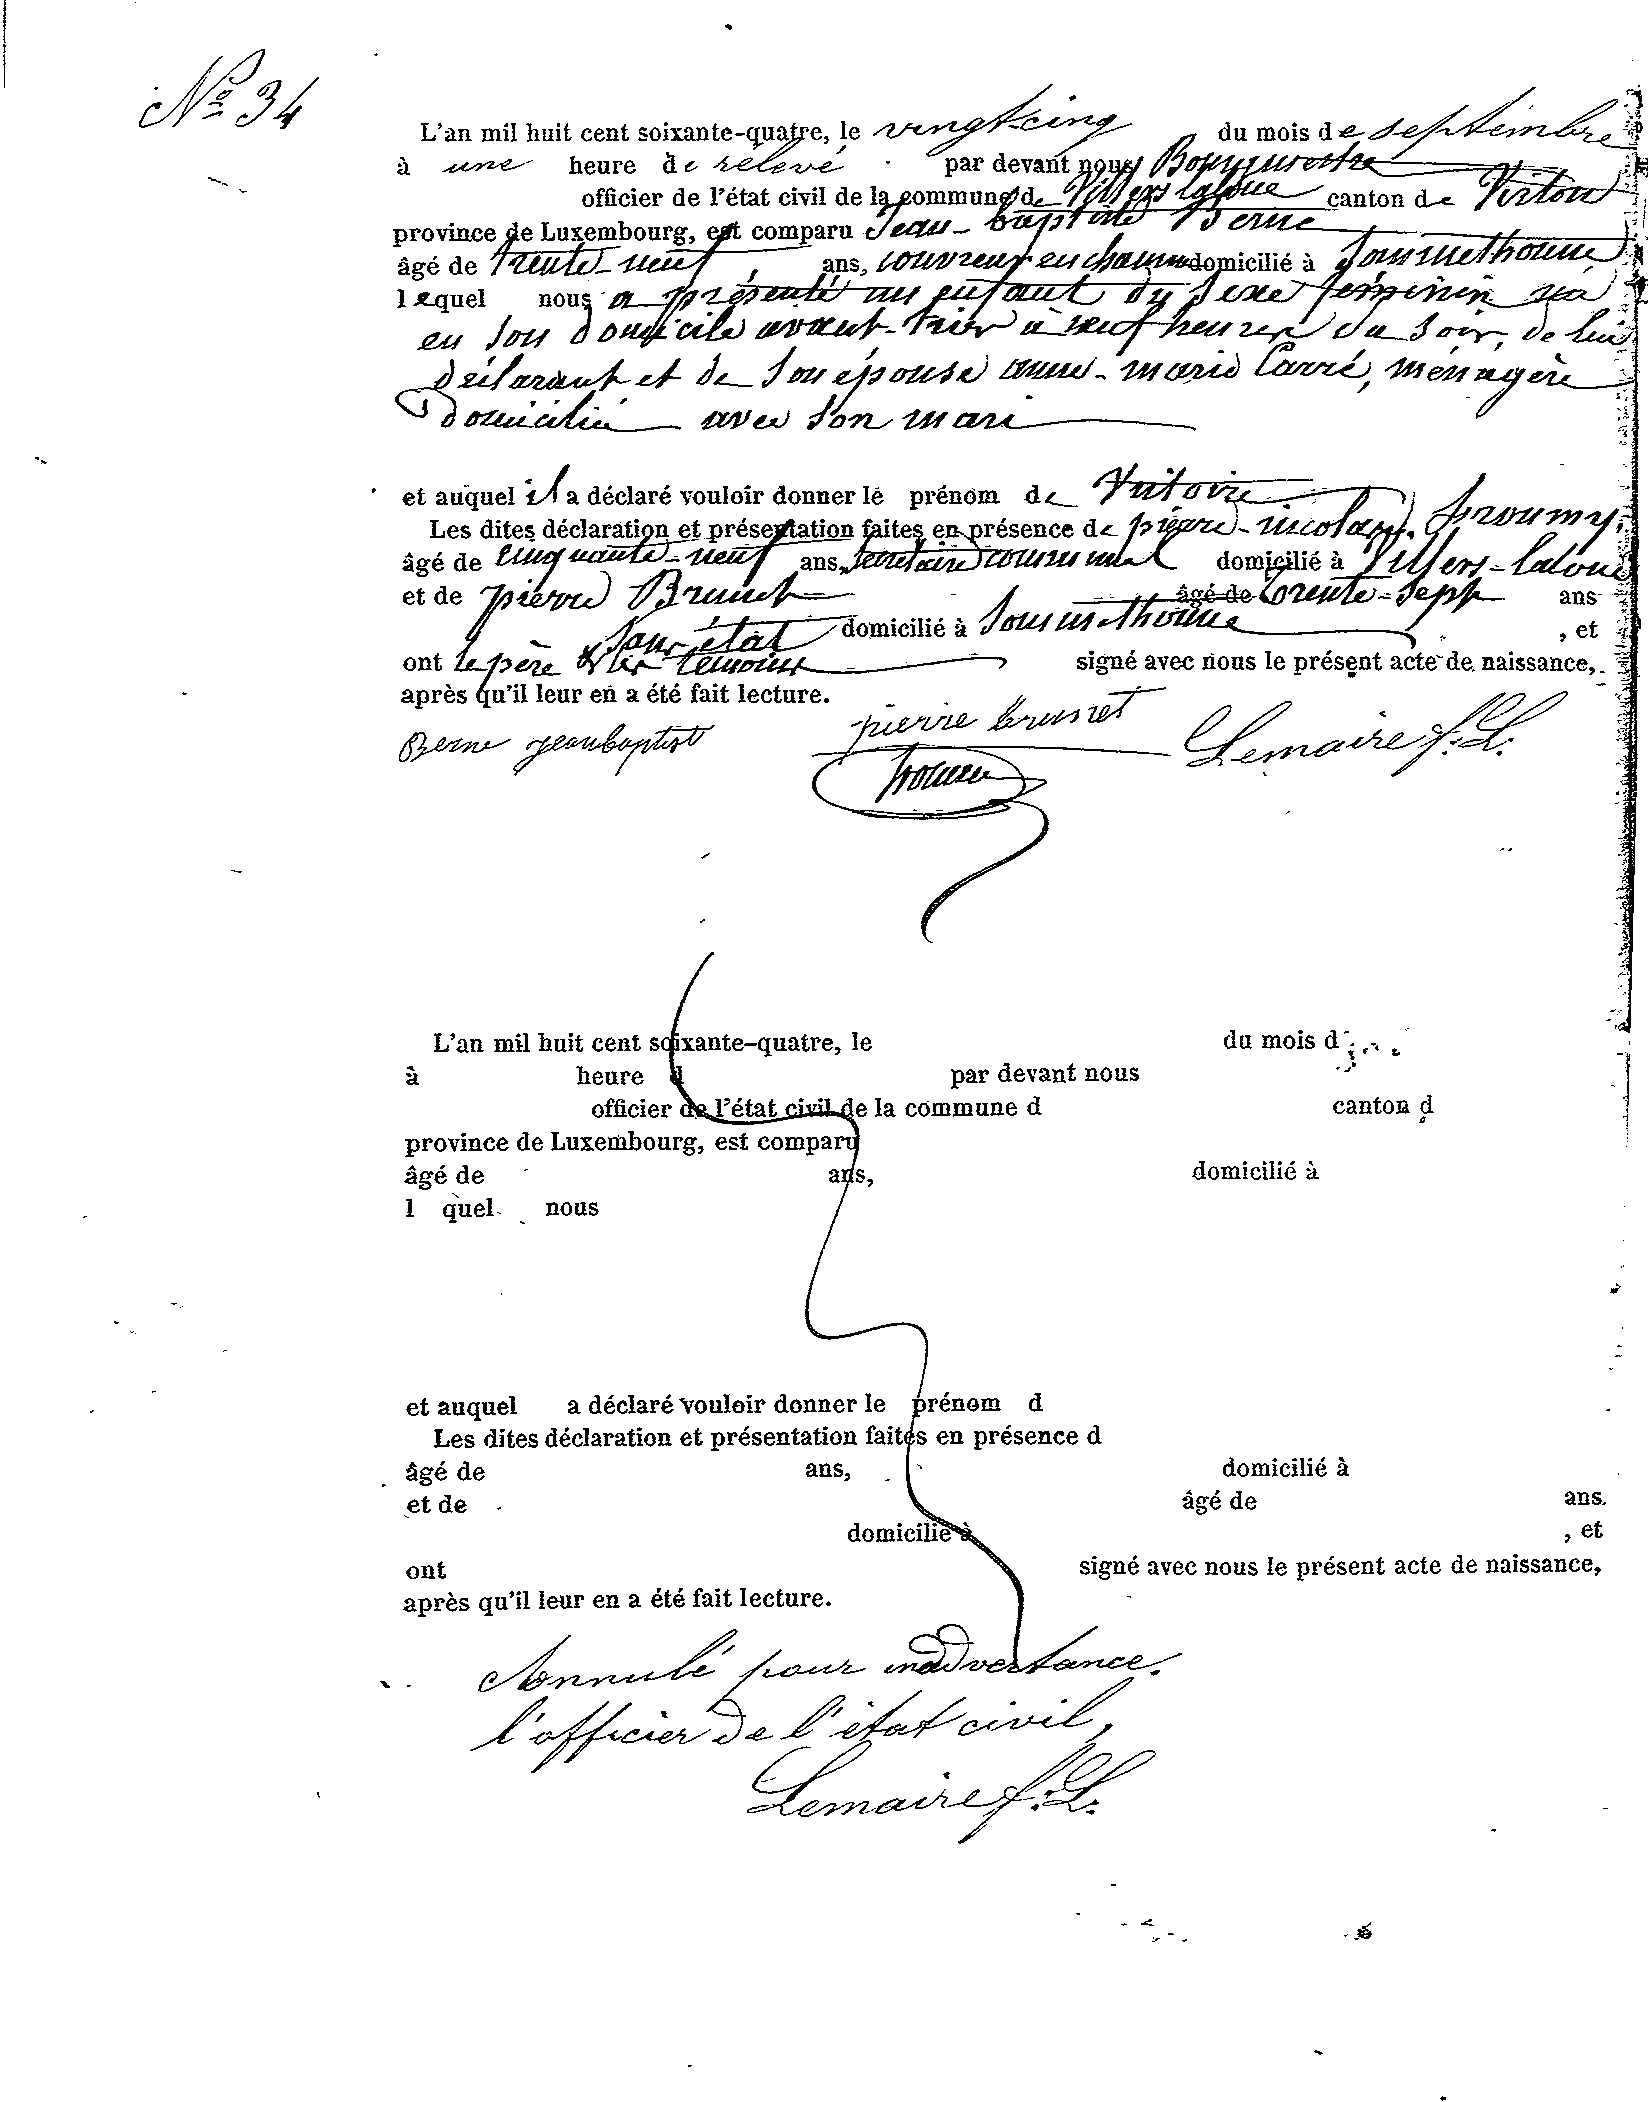 N° 34
L'an mil huit cent soixante-quatre, le vingt-cinq du mois de septembre
à une heure de relevé par devant nous Bourgmestre
officier de l'état civil de la commune de Villers laloue canton de Virton
province de Luxembourg, est comparu Jean-baptiste Berne
âgé de trente-neuf ans, couvreur en chaume domicilié à Sommethonne
lequel nous a présenté un enfant du sexe féminin né
en son domicile avant-hier à neuf heures du soir, de lui
déclarant et de son épouse anne-marie Carré, ménagère
domicilié avec son mari
et auquel il a déclaré vouloir donner le prénom de Victoire
Les dites déclaration et présentation faites en présence de pierre-nicolas
âgé de cinquante-neuf ans, secrétaire communal domicilié à Villers-laloue
et de pierre Brunet âgé de trente-sept ans
sans état domicilié à Sommethonne , et
ont le père & les témoins signé avec nous le présent acte de naissance,
après qu'il leur en a été fait lecture.
Berne jeanbaptist pierre brunet Lemaire f. L.
L'an mil huit cent soixante-quatre, le du mois d
à heure d par devant nous
officier de l'état civil de la commune d canton d
province de Luxembourg, est comparu
âgé de ans, domicilié à
l quel nous
et auquel a déclaré vouloir donner le prénom d
Les dites déclaration et présentation faites en présence d
âgé de ans, domicilié à
et de âgé de ans.
domicilié à , et
ont signé avec nous le présent acte de naissance,
après qu'il leur en a été fait lecture.
Annulé pour inadvertance.
l'officier de l'état civil,
Lemaire f. L.